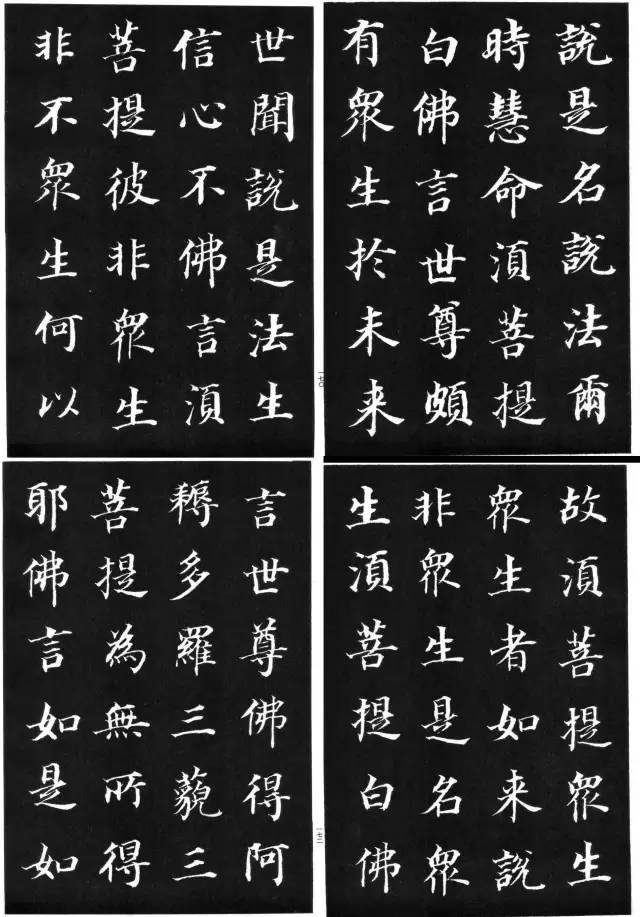 說是名說法爾
時慧命湏菩提
白佛言世尊頗
有眾生扵未来
一七〇
世聞說是法生
信心不佛言湏
菩提彼非眾生
非不眾生何以
故湏菩提眾生
眾生者如来說
非眾生是名眾
生湏菩提白佛
一七二
言世尊佛得阿
耨多羅三藐三
菩提為無所得
耶佛言如是如